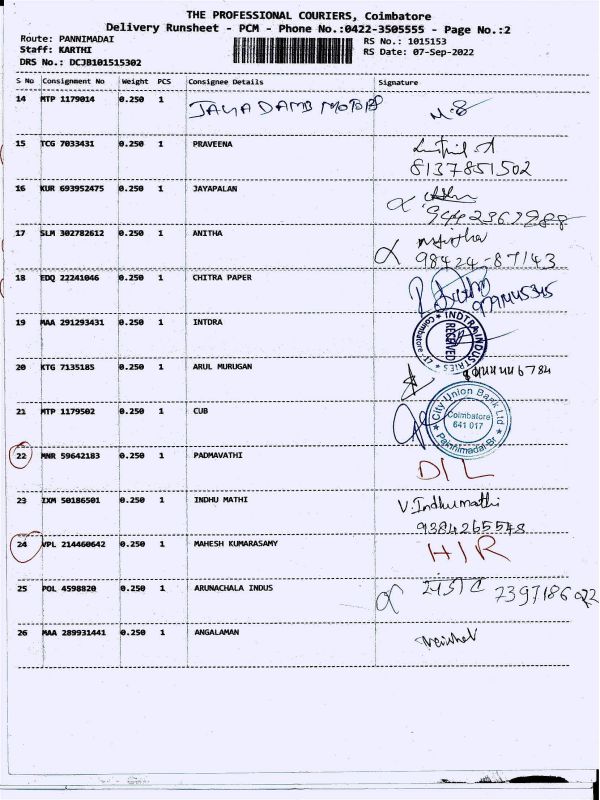 THE PROFESSIONAL COURIERS, Coimbatore
Delivery Runsheet - PCM - Phone No.:0422-3505555 - Page No.:2
Route: PANNIMADAI
Staff: KARTHI
DRS No.: DCJB101515302
RS No.: 1015153
RS Date: 07-Sep-2022
S No Consignment No Weight PCS Consignee Details Signature
14 MTP 1179014 0.250 1 JAYA DAMB MOTORS
15 TCG 7033431 0.250 1 PRAVEENA
8137851502
16 KUR 693952475 0.250 1 JAYAPALAN
17 SLM 302782612 0.250 1 ANITHA
98424-87143
18 EDQ 22241046 0.250 1 CHITRA PAPER
19 MAA 291293431 0.250 1 INTDRA
INDTRA INDUSTRIES
RECEIVED
Coimbatore-17
20 KTG 7135185 0.250 1 ARUL MURUGAN
21 MTP 1179502 0.250 1 CUB
City Union Bank Ltd
Coimbatore
641 017
Pannimadai Br
22 MNR 59642183 0.250 1 PADMAVATHI D/L
23 IXM 50186501 0.250 1 INDHU MATHI V. Indhumathi
24 VPL 214460642 0.250 1 MAHESH KUMARASAMY H/R
25 POL 4598820 0.250 1 ARUNACHALA INDUS
26 MAA 289931441 0.250 1 ANGALAMAN